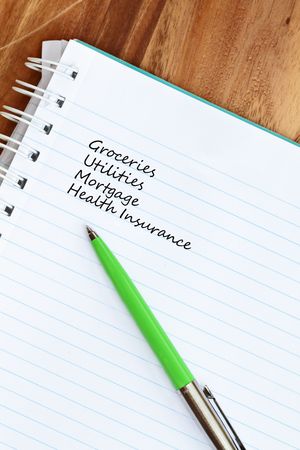 Groceries
Utilities
Mortgage
Health Insurance